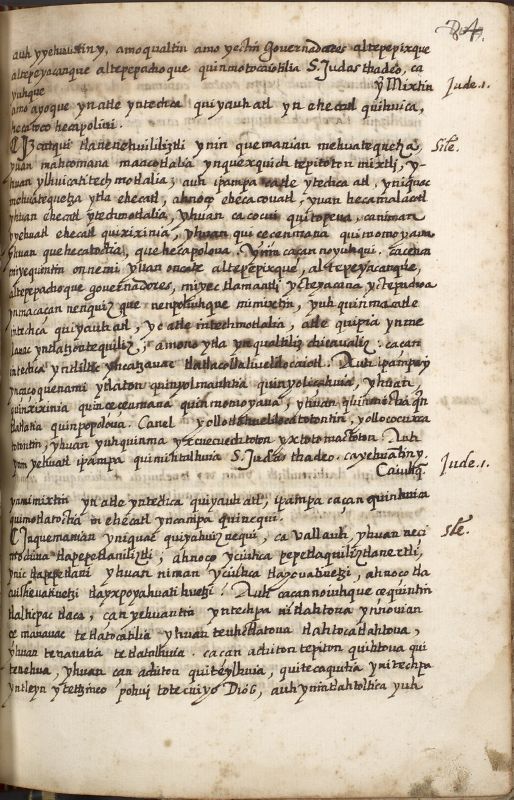 84.
auh yyehuantiny, amo qualtin amo yectin Governadores altepepixque
altepeyacanque altepepachoque quinmotocaiotilia S. Judas thadeo, ca
yuhque ỹ Mixtin Jude.1.
amo ayoque yn atle yntechca quiyauh atl yn ehecatl quihuica,
hecatoco hecapoliui.
Izcatqui tlanenehuililiztli ynin quemanian mehuatequetza, Sile.
yuan mahcomana mancotlalia ynquexquich tepitoton mixtli, y-
huan ylhuicatitech motlalia; auh ipampa ca atle ytedica atl, yniquac
mehuatequetza ytla ehecatl, ahnoço ehecacouatl, yuan hecamalacotl
yhuan ehecatl ytechmotlalia, yhuan ca cocui quitopeua, caniman
yyehuatl ehecatl quixixinia, yhuan qui cecenmana quimomoyaua
yhuan quehecatoctia, quehecapoloua. Ynin caçan noyuhqui. cacenca
miyequintin onnemi yuan oncate altepepixque, altepeyacanque,
altepepachoque governadores, miyec tlamantli yc teyacana yc tepachoa
yn maçacan nenquizque nenpoliuhque mimixtin, yuh quinma atle
intechca quiyauh atl, yc atle intechmotlalia, atle quipia yn me
lauac yn tlatzontequiliz; amono ytla yn qualtiliz chicaualiz. cacan
intedica yn tliltic yn catzauac tlatlacollatliuelilocaiotl. Auh ipampay
yn çaço quenami ytlaton quinyolmauhtia quinyolicahuia, yhuan
quinxixinia quincecemana quinmomoyaua, yhuan quinmictia quin
tlatlatia quinpopoloua. Canel yollotlahuelilocatotontin, yollococoxca
totontin, yhuan yuhquinma yxcuecuechtoton yxtotomactoton. Auh
ynin yehuatl ipampa quimihtalhuia S. Judas thadeo. ca yehuatiny.
Ca iuhq̃ Jude.1.
ynmimixtin yn atle yntedica quiyauh atl, ipampa caçan quinhuica
quimotlatoctia in ehecatl yncampa quinequi.
Inquemanian yniquac quiyahuiznequi, ca vallauh, yhuan neci Sile.
mochiua tlapepetlaniliztli; ahnoço yciuhca pepetlaquiliztlanextli,
ynic tlapepetlani yhuan niman yciuhca tlayouatiuetzi, ahnoço tla
cuicheuatiuetzi tlayxpoyahuatihuetzi. Auh cacannoiuhque cequintin
tlalticpac tlaca, can yehuantin yntechpa ni tlahtoua ynnouian
ce manauac tetlatocatilia yhuan teuhctlatoua tlahtocatlahtoua,
yhuan tenauatia tetlatalhuia. ca can achiton tepiton quihtoua qui
tenehua, yhuan can achiton quiteylhuia, quitecaquitia ynitechpa
yntleyn ytetzinco pohui totecuiyo Dios, auh ynintlahtoltica yuh